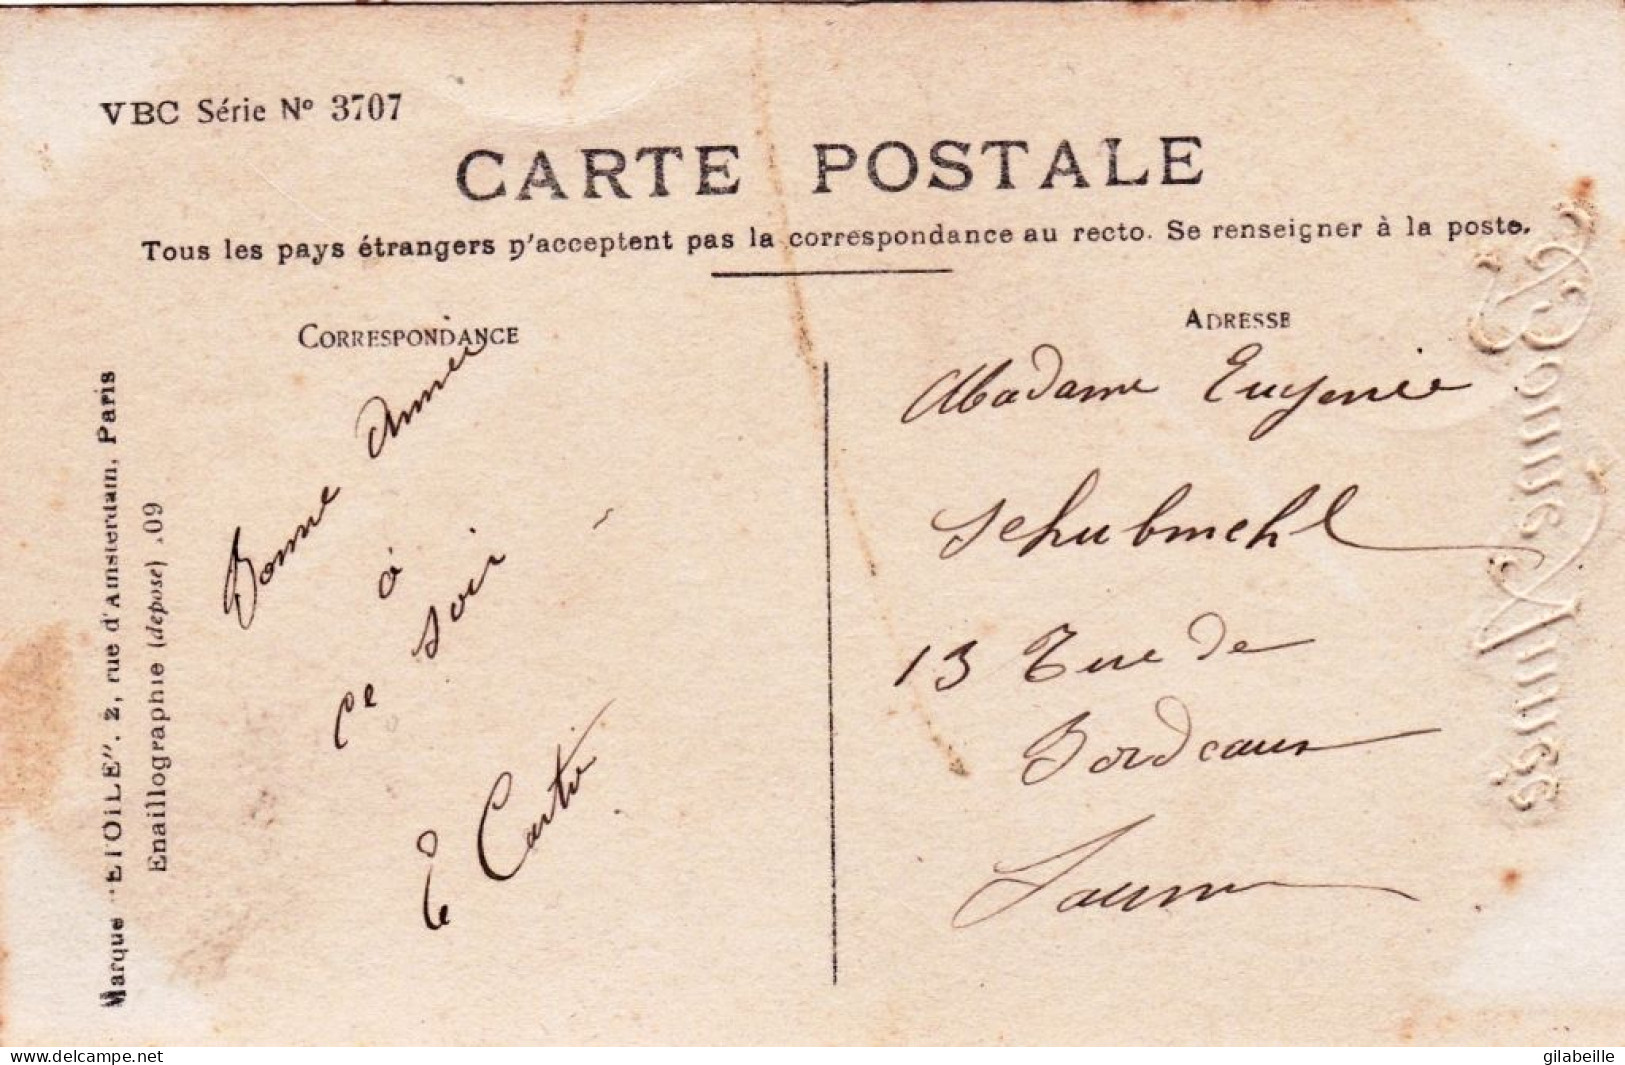 VBC Série Nº 3707
CARTE POSTALE
Tous les pays étrangers n'acceptent pas la correspondance au recto. Se renseigner à la poste.
CORRESPONDANCE
Bonne Année
à
ce soir
E Cartié
ADRESSE
Madame Eugenie
Schubmehl
13 Rue de
Bordeaux
Saumur
Bonne Année
Marque "ETOILE". 2, rue d'Amsterdam, Paris
Emaillographie (déposé) .09
www.delcampe.net
gilabeille